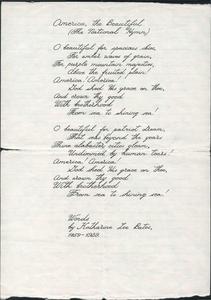 America, the Beautiful
(The National Hymn)
O beautiful for spacious skies,
For amber waves of grain,
For purple mountain majesties
Above the fruited plain!
America! America!
God shed His grace on thee,
And crown thy good
With brotherhood
From sea to shining sea!
O beautiful for patriot dream,
That sees beyond the years
Thine alabaster cities gleam,
Undimmed by human tears!
America! America!
God shed His grace on thee,
And crown thy good
With brotherhood
From sea to shining sea!
Words
by Katharine Lee Bates,
1859-1929.